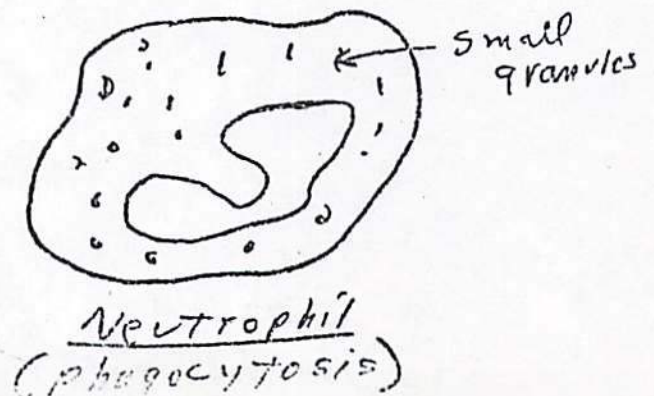 small
granules
Neutrophil
(phagocytosis)